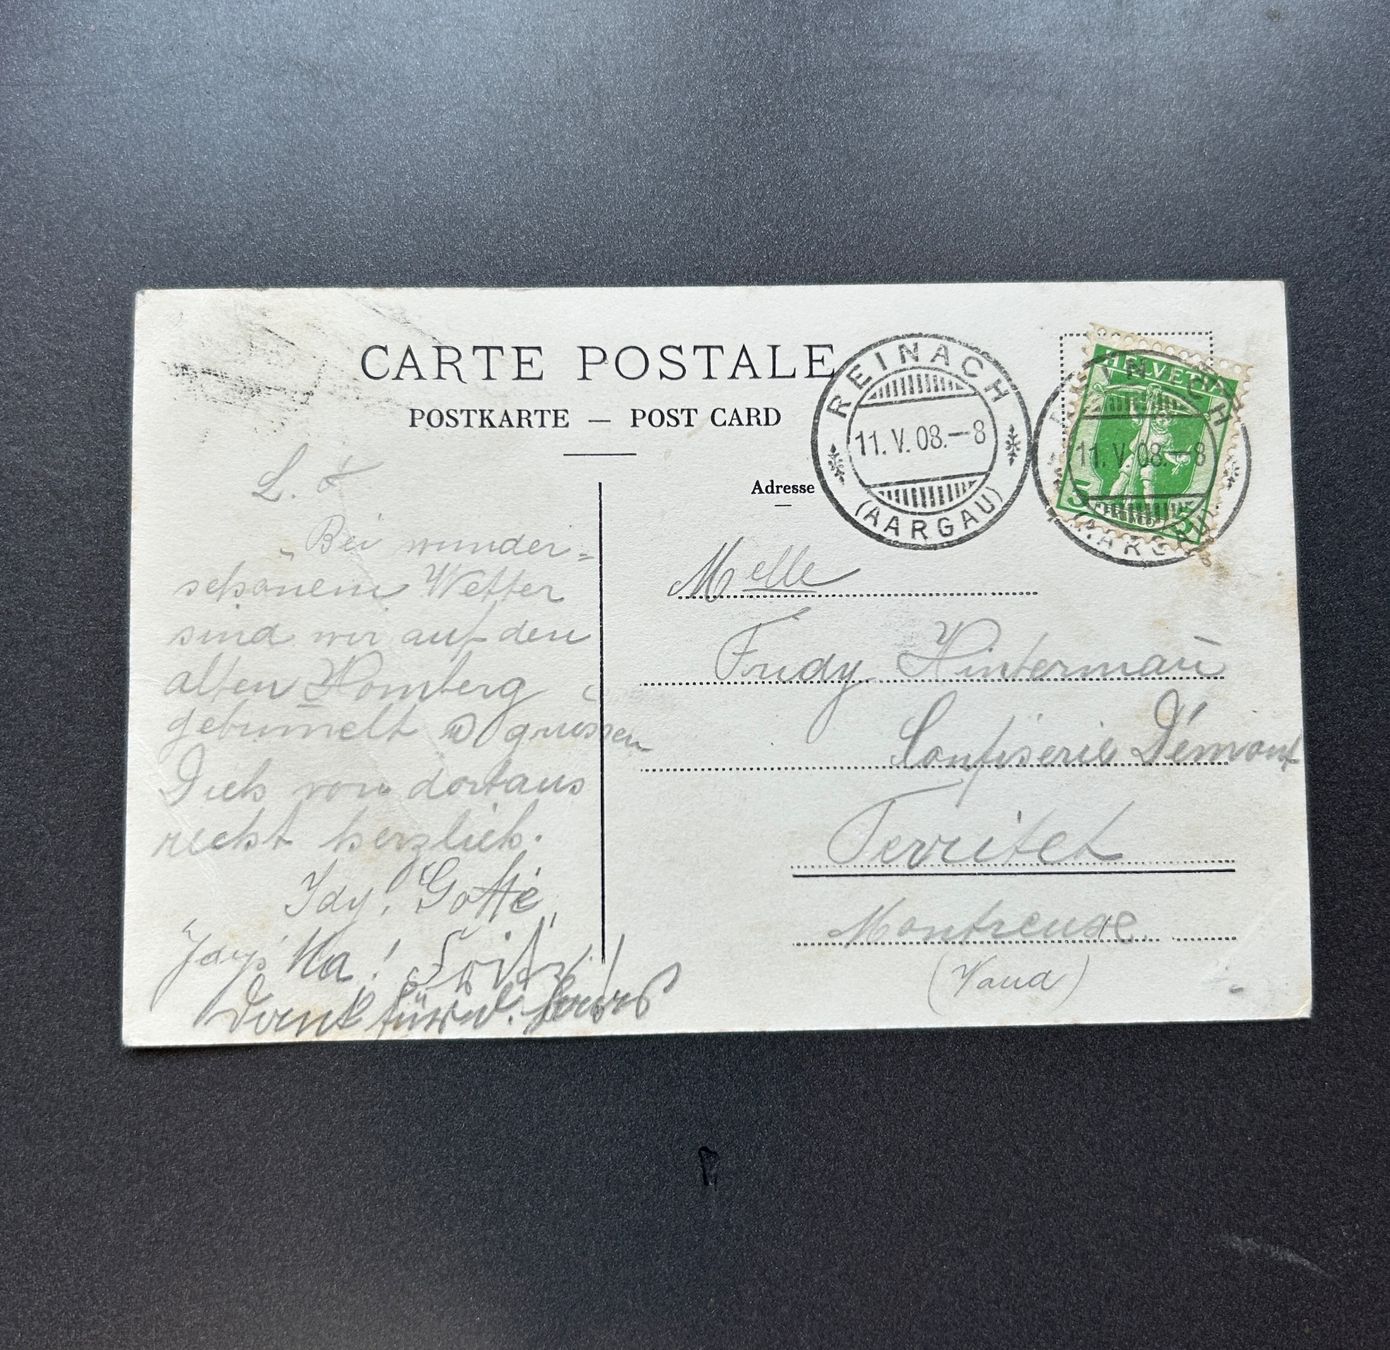 CARTE POSTALE
POSTKARTE — POST CARD
Adresse
REINACH
11. V. 08.-8
(AARGAU)
HELVETIA
5
REINACH
11. V. 08.-8
(AARGAU)
L.
Bei wunder=
schönem Wetter
sind wir auf den
alten Homberg
gebum̄elt & grüssen
Dich von dortaus
recht herzlich.
Idy! Gotte
Idys Ma! Fritz!
Dank für d.
Melle
Fridy Hinterman̄
Confiserie Démont
Territet
Montreux
(Vaud)